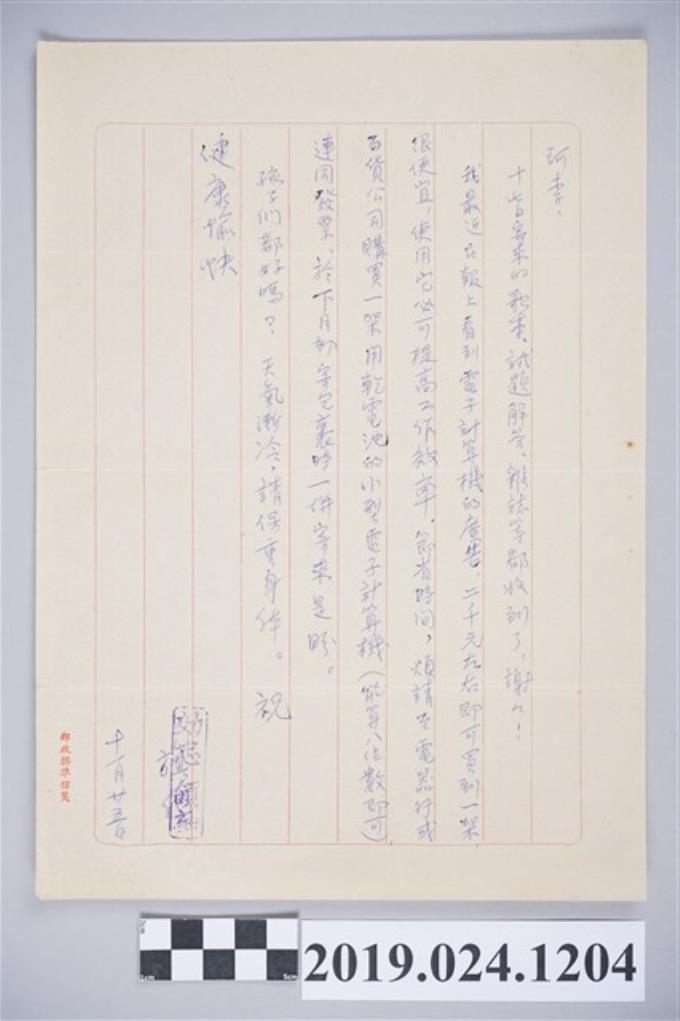 阿季、
十七日寄來的歌本、試題解答、雜誌等都收到了，謝々！
我最近在報上看到電子計算機的廣告，二千元左右即可買到一架
很便宜，使用它必可提高工作效率，節省時間，煩請至電器行或
百貨公司購買一架用乾電池的小型電子計算機（能算八位數即可）
連同發票、於下月初寄包裹時一併寄來是盼。
孩子們都好嗎？天氣漸冷，請保重身体。祝
健康愉快
十一月廿五日
郵政標準信箋
2019.024.1204
1cm
5cm